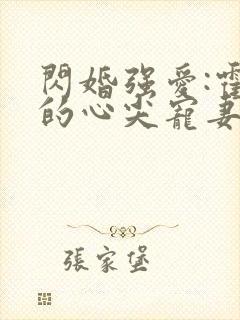 閃婚强愛:霍
的心尖寵妻
張家堡